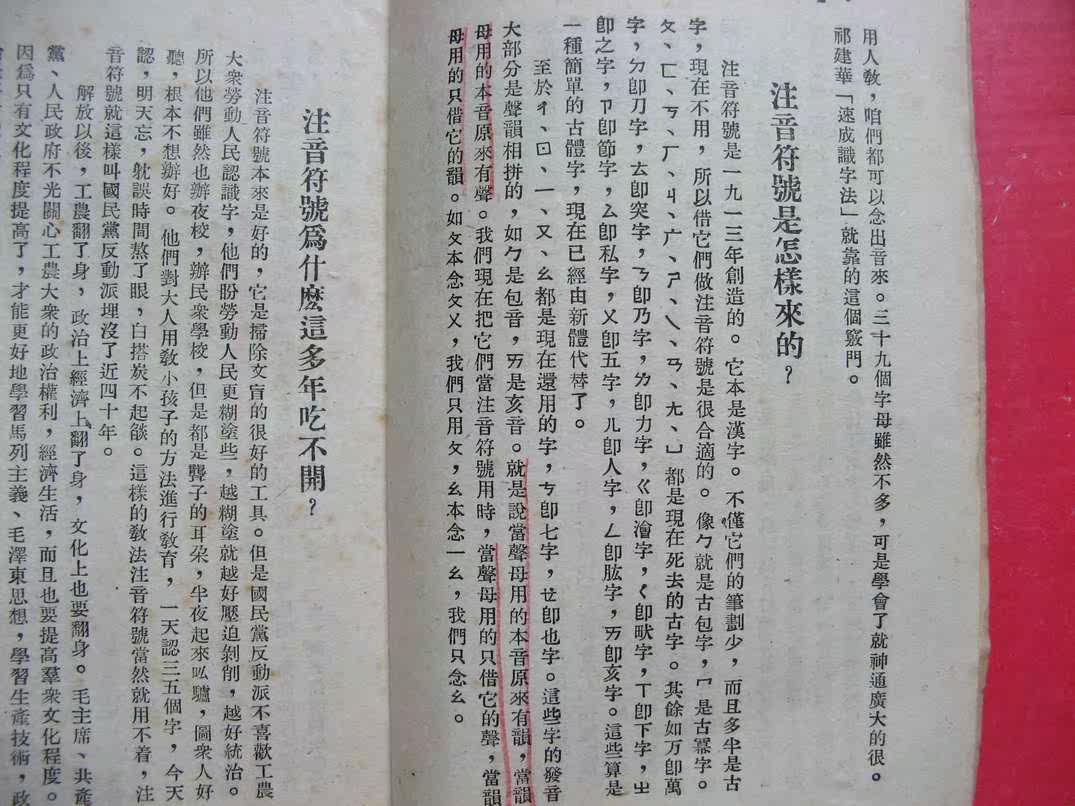 用人敎，咱們都可以念出音來。三十九個字母雖然不多，可是學會了就神通廣大的很。
祁建華「速成識字法」就靠的這個竅門。
注音符號是怎樣來的？
注音符號是一九一三年創造的。它本是漢字。不僅它們的筆劃少，而且多半是古
字，現在不用，所以借它們做注音符號是很合適的。像ㄅ就是古包字，冖是古冪字。
ㄆ、ㄈ、ㄋ、ㄏ、ㄐ、广、ㄕ、ㄟ、ㄢ、ㄤ、ㄩ都是現在死去的古字。其餘如万卽萬
字，ㄉ卽刀字，ㄊ卽突字，ㄋ卽乃字，ㄌ卽力字，ㄍ卽澮字，ㄑ卽畎字，ㄒ卽下字，ㄓ
卽之字，ㄗ卽節字，ㄙ卽私字，ㄡ卽五字，ㄦ卽人字，ㄥ卽肱字，ㄞ卽亥字。這些算是
一種簡單的古體字，現在已經由新體代替了。
至於ㄔ、ㄖ、ㄧ、ㄡ、ㄠ都是現在還用的字，ㄘ卽七字，ㄝ卽也字。這些字的發音
大部分是聲韻相拼的，如ㄅ是包音，ㄞ是亥音。就是說當聲母用的本音原來有韻，當韻
母用的本音原來有聲。我們現在把它們當注音符號用時，當聲母用的只借它的聲，當韻
母用的只借它的韻。如ㄆ本念ㄆㄨ，我們只用ㄆ，ㄠ本念ㄧㄠ，我們只念ㄠ。
注音符號爲什麽這多年吃不開？
注音符號本來是好的，它是掃除文盲的很好的工具。但是國民黨反動派不喜歡工農
大衆勞動人民認識字，他們盼勞動人民更糊塗些，越糊塗就越好壓迫剝削，越好統治。
所以他們雖然也辦夜校，辦民衆學校，但是都是聾子的耳朵，半夜起來吆驢，圖衆人好
聽，根本不想辦好。他們對大人用敎小孩子的方法進行敎育，一天認三五個字，今天
認，明天忘，躭誤時間熬了眼，白搭炭不起燄。這樣的敎法注音符號當然就用不着，注
音符號就這樣叫國民黨反動派埋沒了近四十年。
解放以後，工農翻了身，政治上經濟上翻了身，文化上也要翻身。毛主席、共產
黨、人民政府不光關心工農大衆的政治權利，經濟生活，而且也要提高羣衆文化程度。
因爲只有文化程度提高了，才能更好地學習馬列主義、毛澤東思想，學習生產技術，政